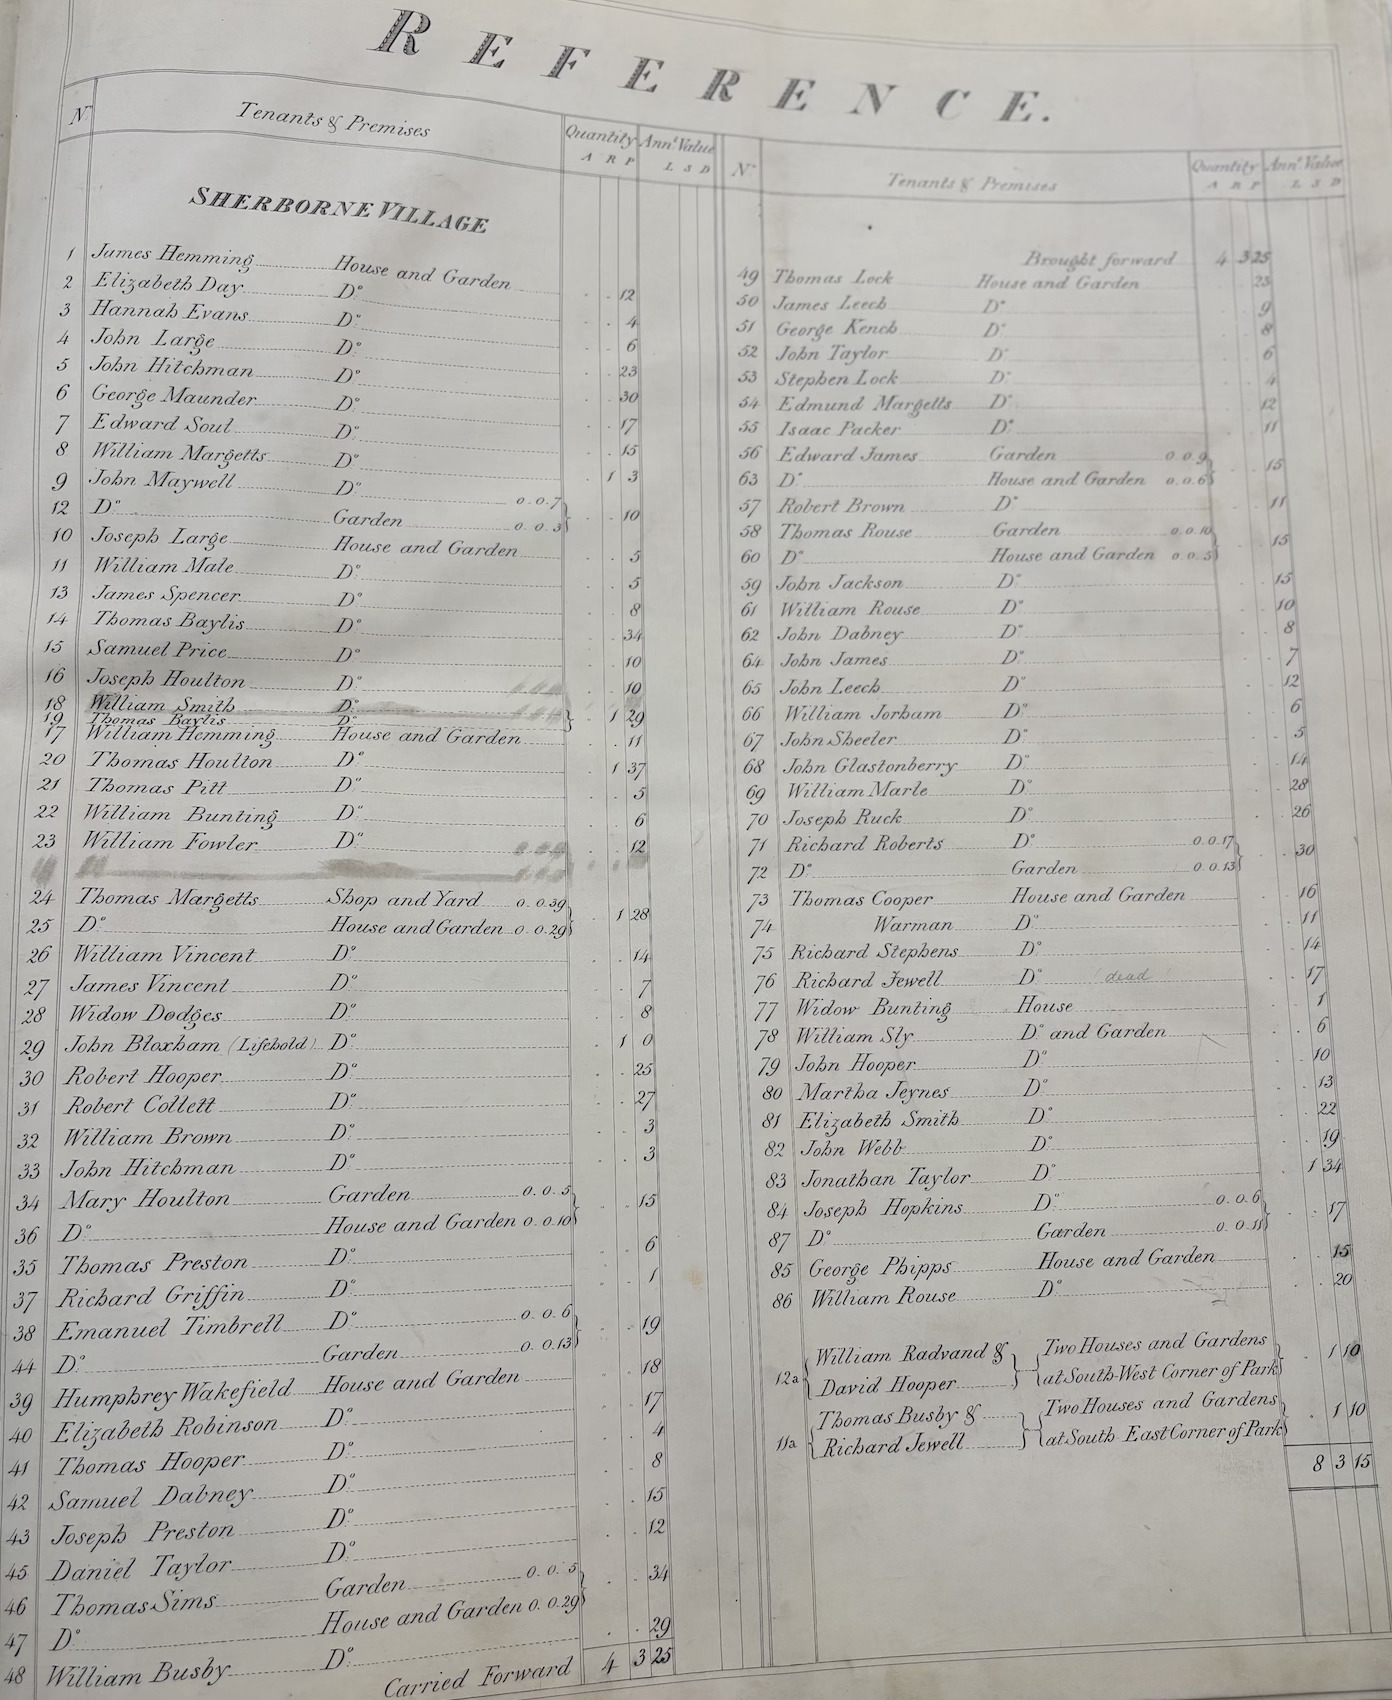 REFERENCE.
No Tenants & Premises Quantity Ann.l Value
A R P L S D
SHERBORNE VILLAGE
1 James Hemming House and Garden . . 12
2 Elizabeth Day Do . . 4
3 Hannah Evans Do . . 6
4 John Large Do . . 23
5 John Hitchman Do . . 30
6 George Maunder Do . . 17
7 Edward Soul Do . . 15
8 William Margetts Do . 1 3
9 John Maywell Do 0. 0. 7
12 Do Garden 0. 0. 3 } . . 10
10 Joseph Large House and Garden . . 5
11 William Male Do . . 5
13 James Spencer Do . . 8
14 Thomas Baylis Do . . 34
15 Samuel Price Do . . 10
16 Joseph Houlton Do . . 10
18 William Smith Do
19 Thomas Baylis Do } . 1 29
17 William Hemming House and Garden . . 11
20 Thomas Houlton Do . 1 37
21 Thomas Pitt Do . . 5
22 William Bunting Do . . 6
23 William Fowler Do . . 12
24 Thomas Margetts Shop and Yard 0. 0. 39
25 Do House and Garden 0. 0. 29 } . 1 28
26 William Vincent Do . . 14
27 James Vincent Do . . 7
28 Widow Dodges Do . . 8
29 John Bloxham (Lifehold) Do . 1 0
30 Robert Hooper Do . . 25
31 Robert Collett Do . . 27
32 William Brown Do . . 3
33 John Hitchman Do . . 3
34 Mary Houlton Garden 0. 0. 5
36 Do House and Garden 0. 0. 10 } . . 15
35 Thomas Preston Do . . 6
37 Richard Griffin Do . . 1
38 Emanuel Timbrell Do 0. 0. 6
44 Do Garden 0. 0. 13 } . . 19
39 Humphrey Wakefield House and Garden . . 18
40 Elizabeth Robinson Do . . 17
41 Thomas Hooper Do . . 4
42 Samuel Dabney Do . . 8
43 Joseph Preston Do . . 15
45 Daniel Taylor Do . . 12
46 Thomas Sims Garden 0. 0. 5
47 Do House and Garden 0. 0. 29 } . . 34
48 William Busby Do . . 29
Carried Forward 4 3 25
No Tenants & Premises Quantity Ann.l Value
A R P L S D
Brought forward 4 3 25
49 Thomas Lock House and Garden 23
50 James Leech Do 9
51 George Kench Do 8
52 John Taylor Do 6
53 Stephen Lock Do 4
54 Edmund Margetts Do 12
55 Isaac Packer Do 11
56 Edward James Garden 0. 0. 9
63 Do House and Garden 0. 0. 6 } . . 15
57 Robert Brown Do . . 11
58 Thomas Rouse Garden 0. 0. 10
60 Do House and Garden 0. 0. 5 } . . 15
59 John Jackson Do . . 15
61 William Rouse Do . . 10
62 John Dabney Do . . 8
64 John James Do . . 7
65 John Leech Do . . 12
66 William Jorham Do . . 6
67 John Sheeler Do . . 5
68 John Glastonberry Do . . 14
69 William Marle Do . . 28
70 Joseph Ruck Do . . 26
71 Richard Roberts Do 0. 0. 17
72 Do Garden 0. 0. 13 } . . 30
73 Thomas Cooper House and Garden . . 16
74 Warman Do . . 11
75 Richard Stephens Do . . 14
76 Richard Jewell Do (dead) . . 17
77 Widow Bunting House . . 1
78 William Sly Do and Garden . . 6
79 John Hooper Do . . 10
80 Martha Jeynes Do . . 13
81 Elizabeth Smith Do . . 22
82 John Webb Do . . 19
83 Jonathan Taylor Do . 1 34
84 Joseph Hopkins Do 0. 0. 6
87 Do Garden 0. 0. 11 } . . 17
85 George Phipps House and Garden . . 15
86 William Rouse Do . . 20
12a { William Radvand & } { Two Houses and Gardens
David Hooper at South-West Corner of Park } . 1 10
11a { Thomas Busby & } { Two Houses and Gardens
Richard Jewell at South East Corner of Park } . 1 10
8 3 15